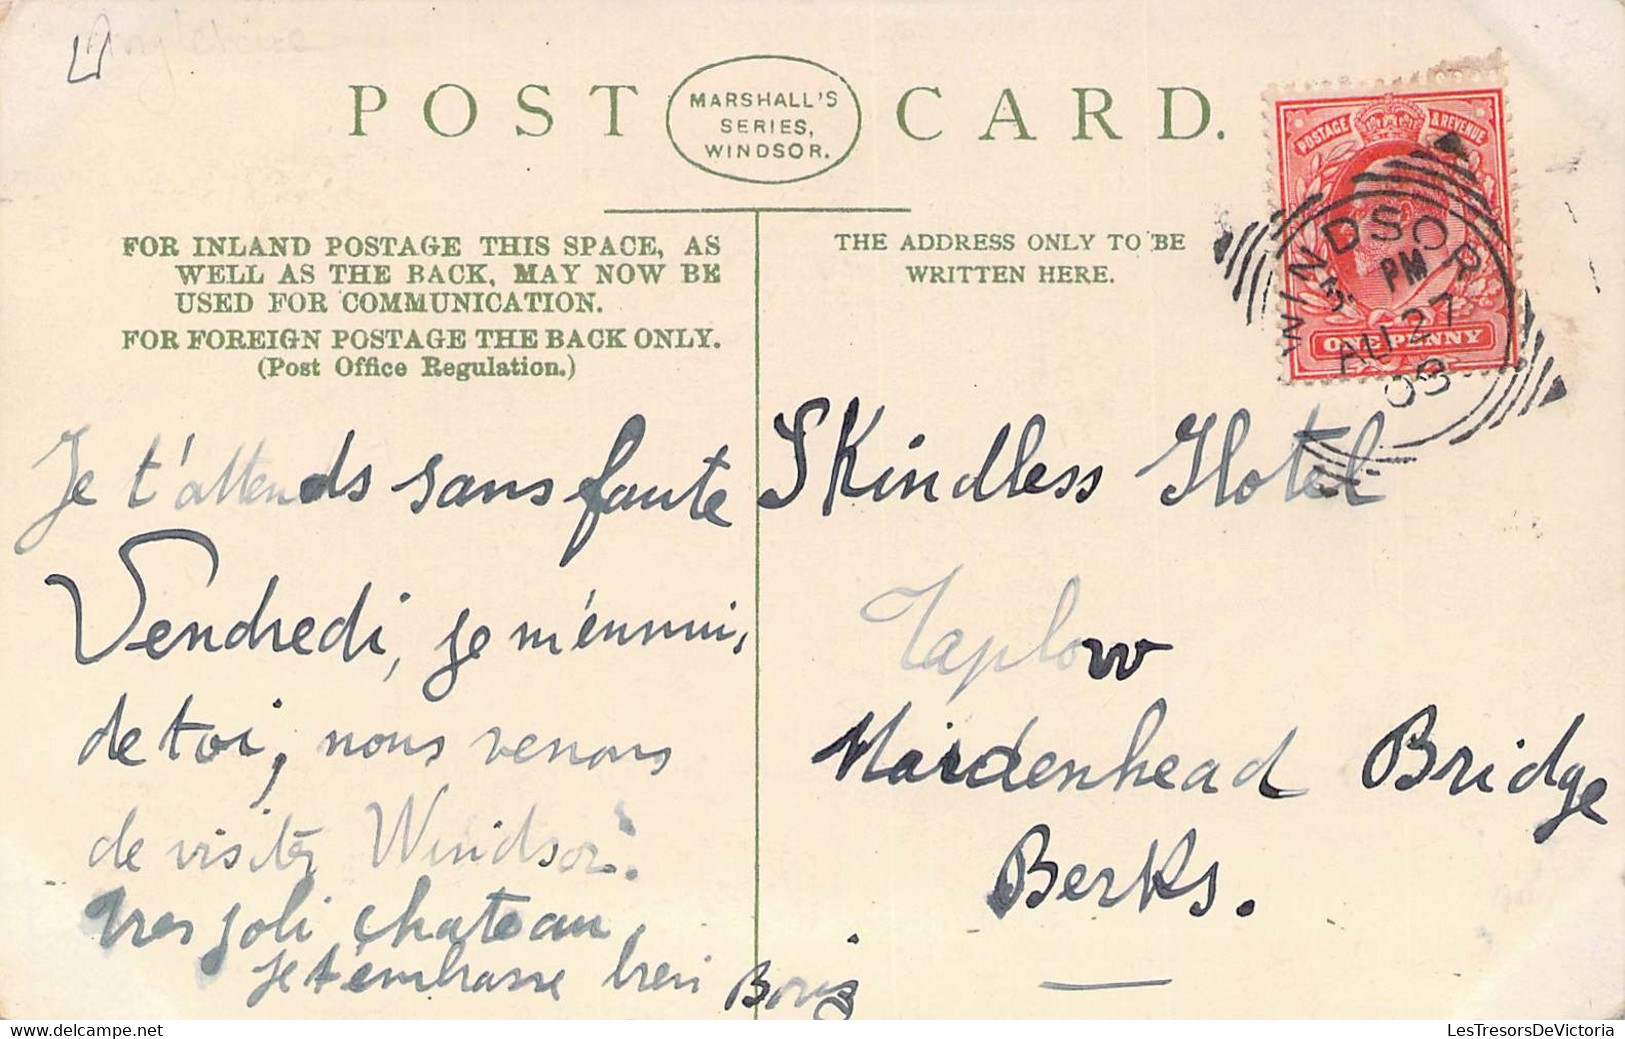 Angleterre
POST CARD.
MARSHALL'S
SERIES,
WINDSOR.
FOR INLAND POSTAGE THIS SPACE, AS
WELL AS THE BACK, MAY NOW BE
USED FOR COMMUNICATION.
FOR FOREIGN POSTAGE THE BACK ONLY.
(Post Office Regulation.)
THE ADDRESS ONLY TO BE
WRITTEN HERE.
POSTAGE & REVENUE
ONE PENNY
WINDSOR
PM
AU 27
03
Je t'attends sans faute
Vendredi, je m'ennui,
de toi, nous venons
de visiter Windsor.
tres joli chateau,
je t'embrasse bien Boris
SKindless Hotel
Taplow
Maidenhead Bridge
Berks.
LesTresorsDeVictoria